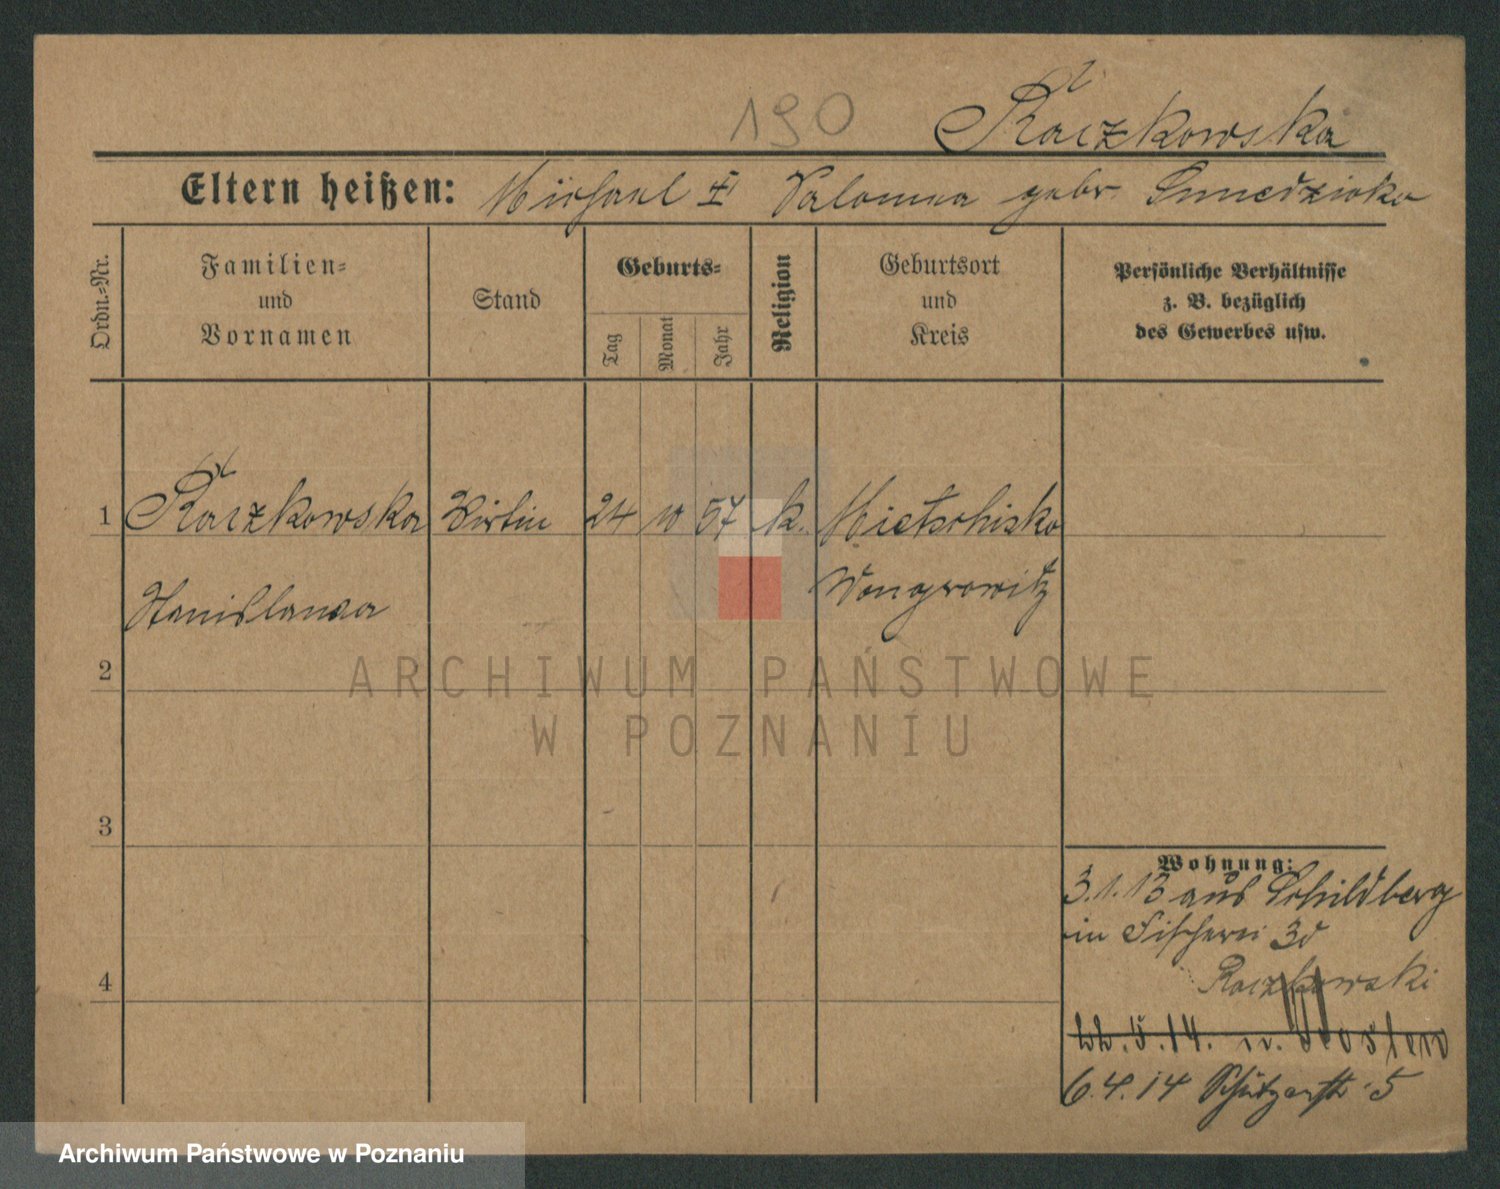 190 Raczkowska
Eltern heißen: Michael u Salomea gebr. Smiedzioka
Ordn.-Nr.
Familien-
und
Vornamen
Stand
Geburts-
Tag
Monat
Jahr
Religion
Geburtsort
und
Kreis
Persönliche Verhältnisse
z. B. bezüglich
des Gewerbes usw.
1 Raczkowska Wirtin 24 10 57 k. Mietschisko
Stanislawa Wongrowitz
2
ARCHIWUM PAŃSTWOWE
W POZNANIU
3
Wohnung:
3.1.13 aus Schildberg
in Fischerei 3d
4
Raczkowski
5.14. n. Kosten
6.4.14 Schützenstr. 5
Archiwum Państwowe w Poznaniu